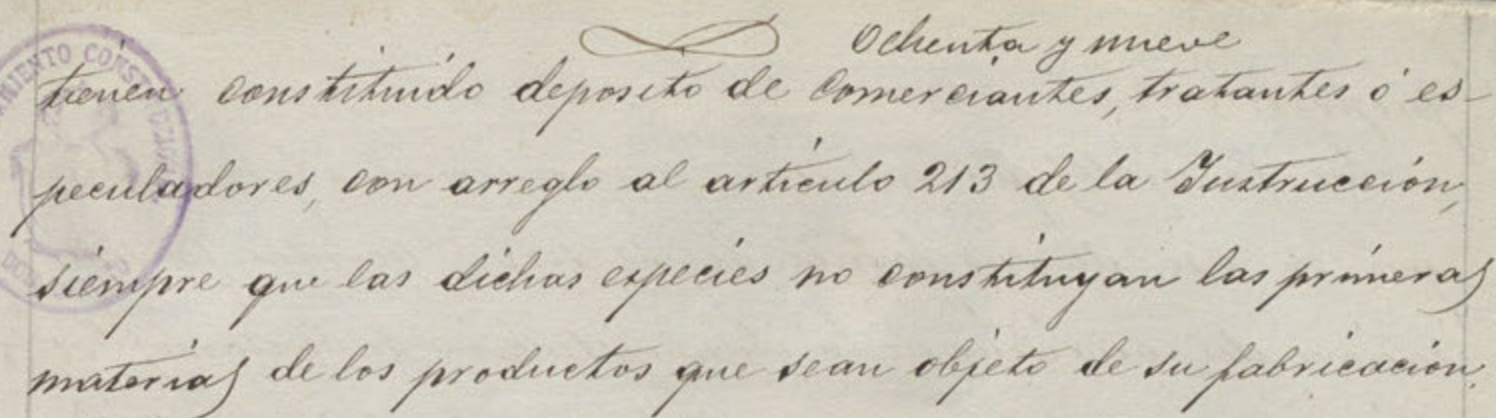 Ochenta y nueve
tienen constituido deposito de comerciantes, tratantes ó es-
peculadores, con arreglo al artículo 213 de la Instrucción,
siempre que las dichas especies no constituyan las primeras
materias de los productos que sean objeto de su fabricación.
MIENTO CONST